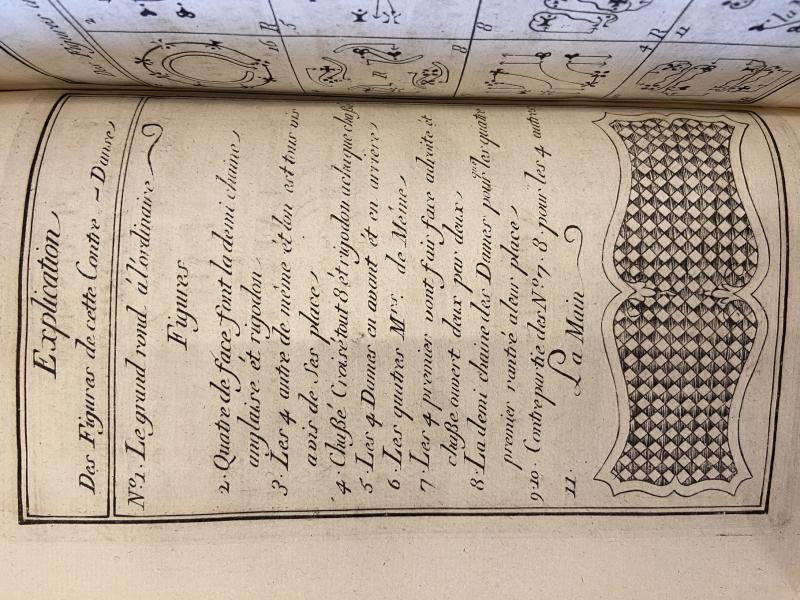 Explication
Des Figures de cette Contre-Danse
No. 1. Le grand rond à l'ordinaire
Figures
2. Quatre de face font la demi chaine
anglaise et rigodon
3. Les 4 autre de même et l'on est tous vis
avis de Ses place
4. Chassé Croisé tout 8 et rigodon a chaque chassé
5. Les 4 Dames en avant et en arriere
6. Les quatres Mrs. de Meme
7. Les 4 premier vont fair face adroite et
chasse ouvert deux par deux
8. La demi chaine des Dames pour les quatre
premier rentré a leur place
9-10. Contrepartie des No. 7. 8 pour les 4 autres
11. La Main